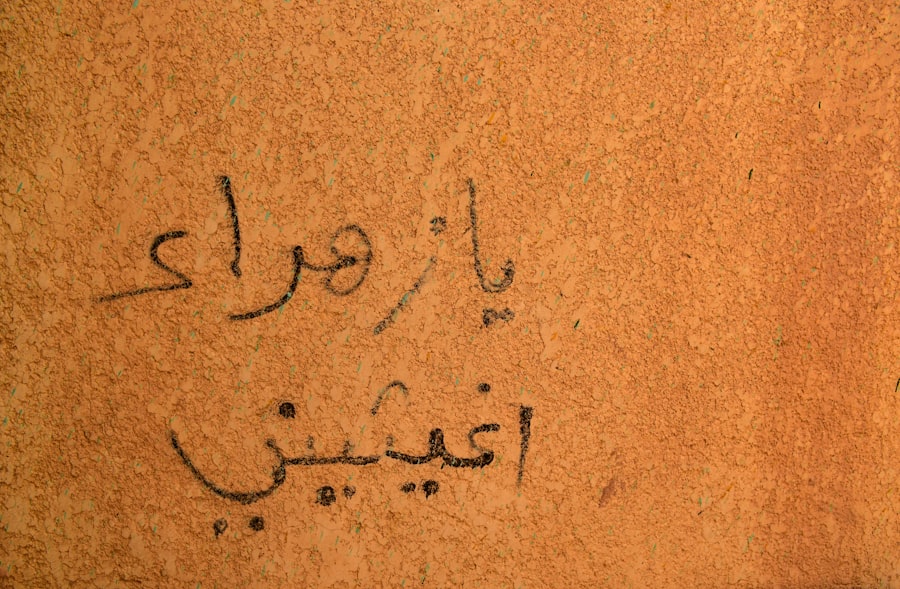 يا زهراء
اغيثيني